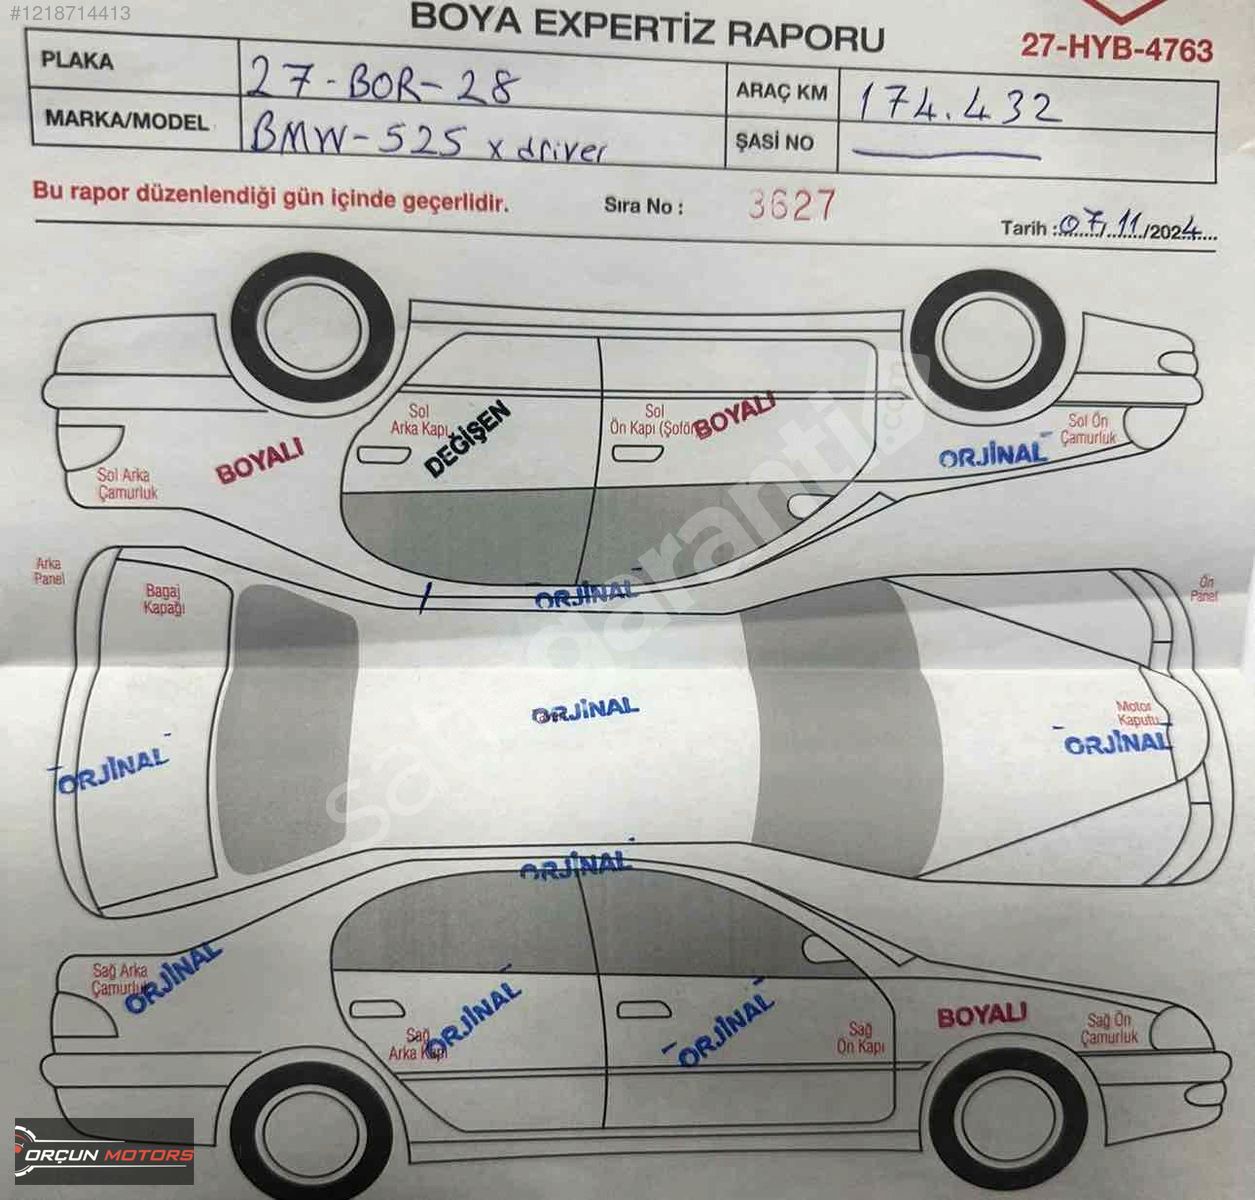 #1218714413
BOYA EXPERTİZ RAPORU
27-HYB-4763
PLAKA 27-BOR-28 ARAÇ KM 174.432
MARKA/MODEL BMW-525 x driver ŞASİ NO
Bu rapor düzenlendiği gün içinde geçerlidir. Sıra No : 3627 Tarih :07/11/2024
Sol Arka Kapı
DEĞİŞEN
Sol Ön Kapı (Şoför
BOYALI
Sol Ön Çamurluk
ORJİNAL
Sol Arka Çamurluk
BOYALI
Arka Panel
Bagaj Kapağı
ORJİNAL
Ön Panel
ORJİNAL
Motor Kaputu
ORJİNAL
ORJİNAL
ORJİNAL
Sağ Arka Çamurluk
ORJİNAL
Sağ Arka Kapı
ORJİNAL
ORJİNAL
Sağ Ön Kapı
BOYALI
Sağ Ön Çamurluk
sahibinden.com garanti
ORÇUN MOTORS